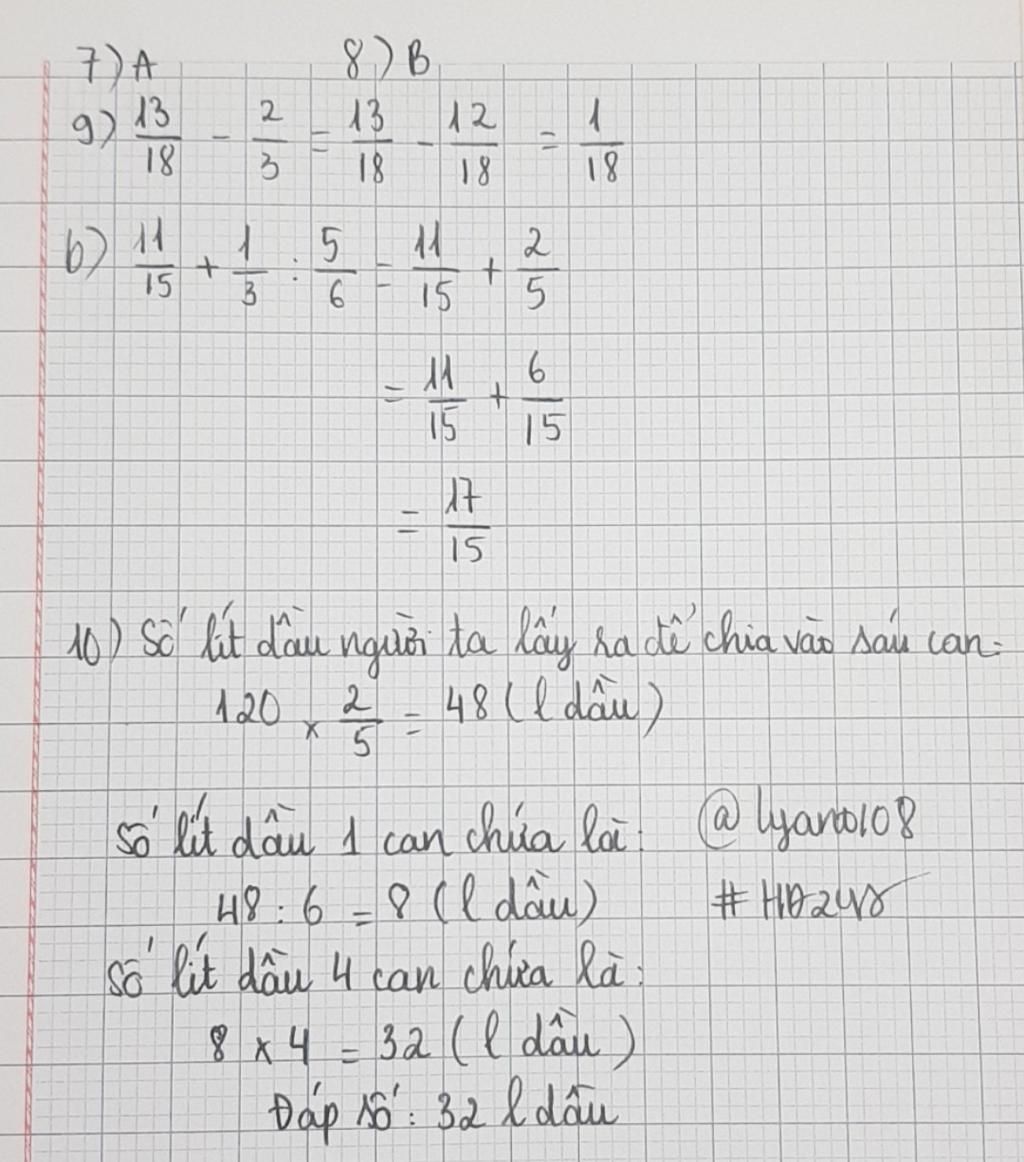 7) A 8) B
9) 13/18 - 2/3 = 13/18 - 12/18 = 1/18
b) 11/15 + 1/3 : 5/6 = 11/15 + 2/5
= 11/15 + 6/15
= 17/15
10) Số lít dầu người ta lấy ra để chia vào sáu can:
120 x 2/5 = 48 (l dầu)
Số lít dầu 1 can chứa là:
@lyano108
48 : 6 = 8 (l dầu)
Số lít dầu 4 can chứa là:
8 x 4 = 32 (l dầu)
Đáp số: 32 l dầu